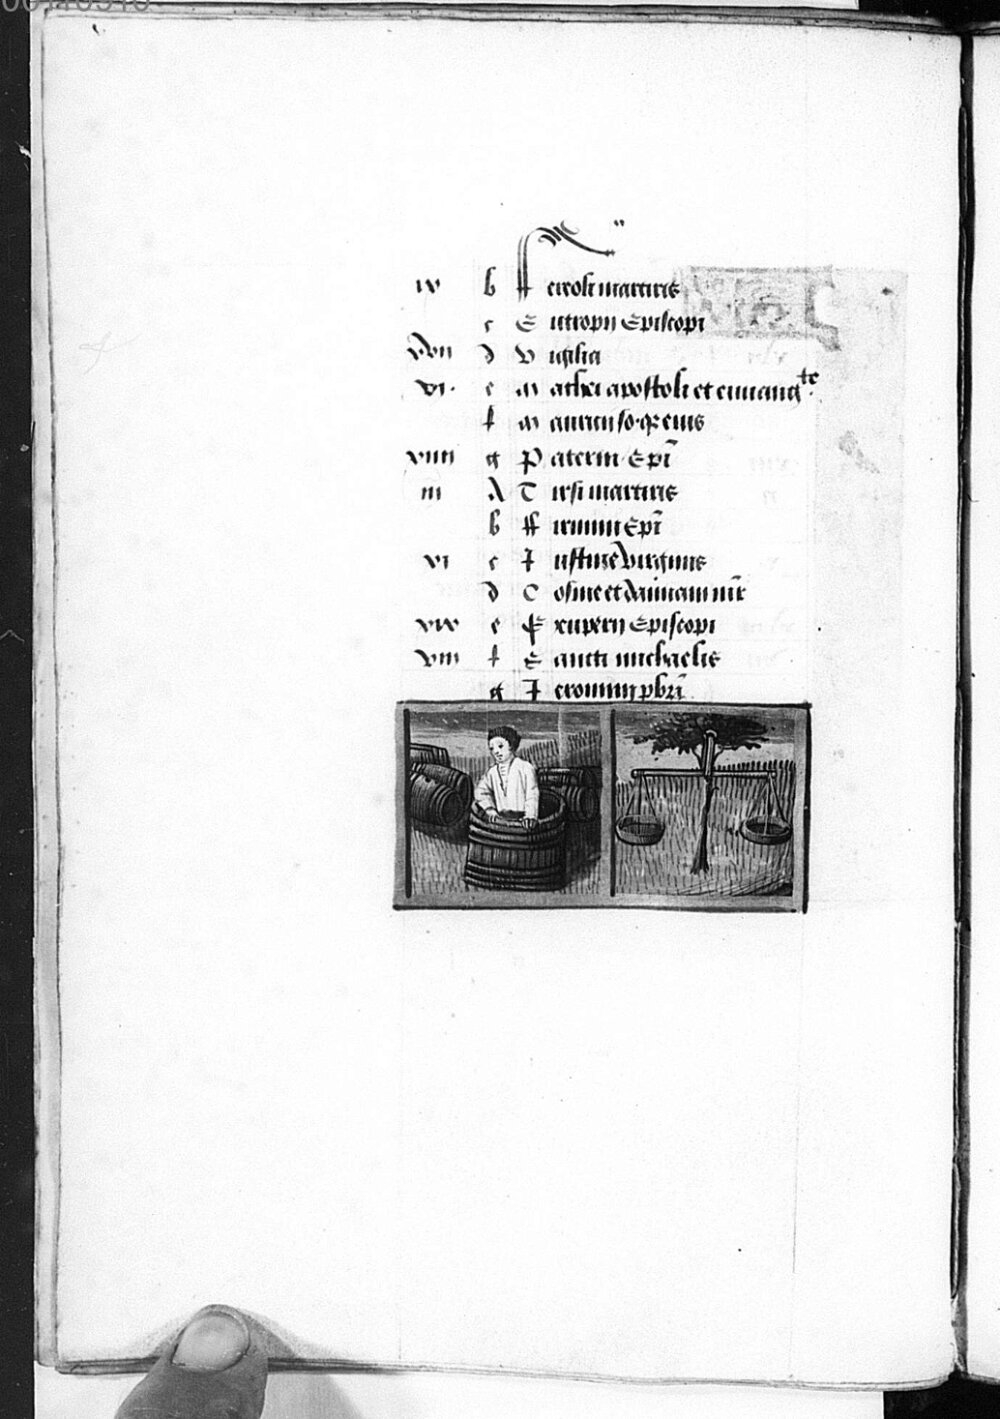 ıx b Ffereoli martiris
c Eutropii Episcopi
xvii d Vigilia
vi. e Mathei apostoli et euuangte
f Mauricii so. qz eius
xiiii g Paterni Epi
iii A Tirsi martiris
b Ffirmini Epi
xi c Justine virginis
d Cosme et Damiani mr
xix e Exuperii Episcopi
viii f Sancti michaelis
g Jeronimi pbri